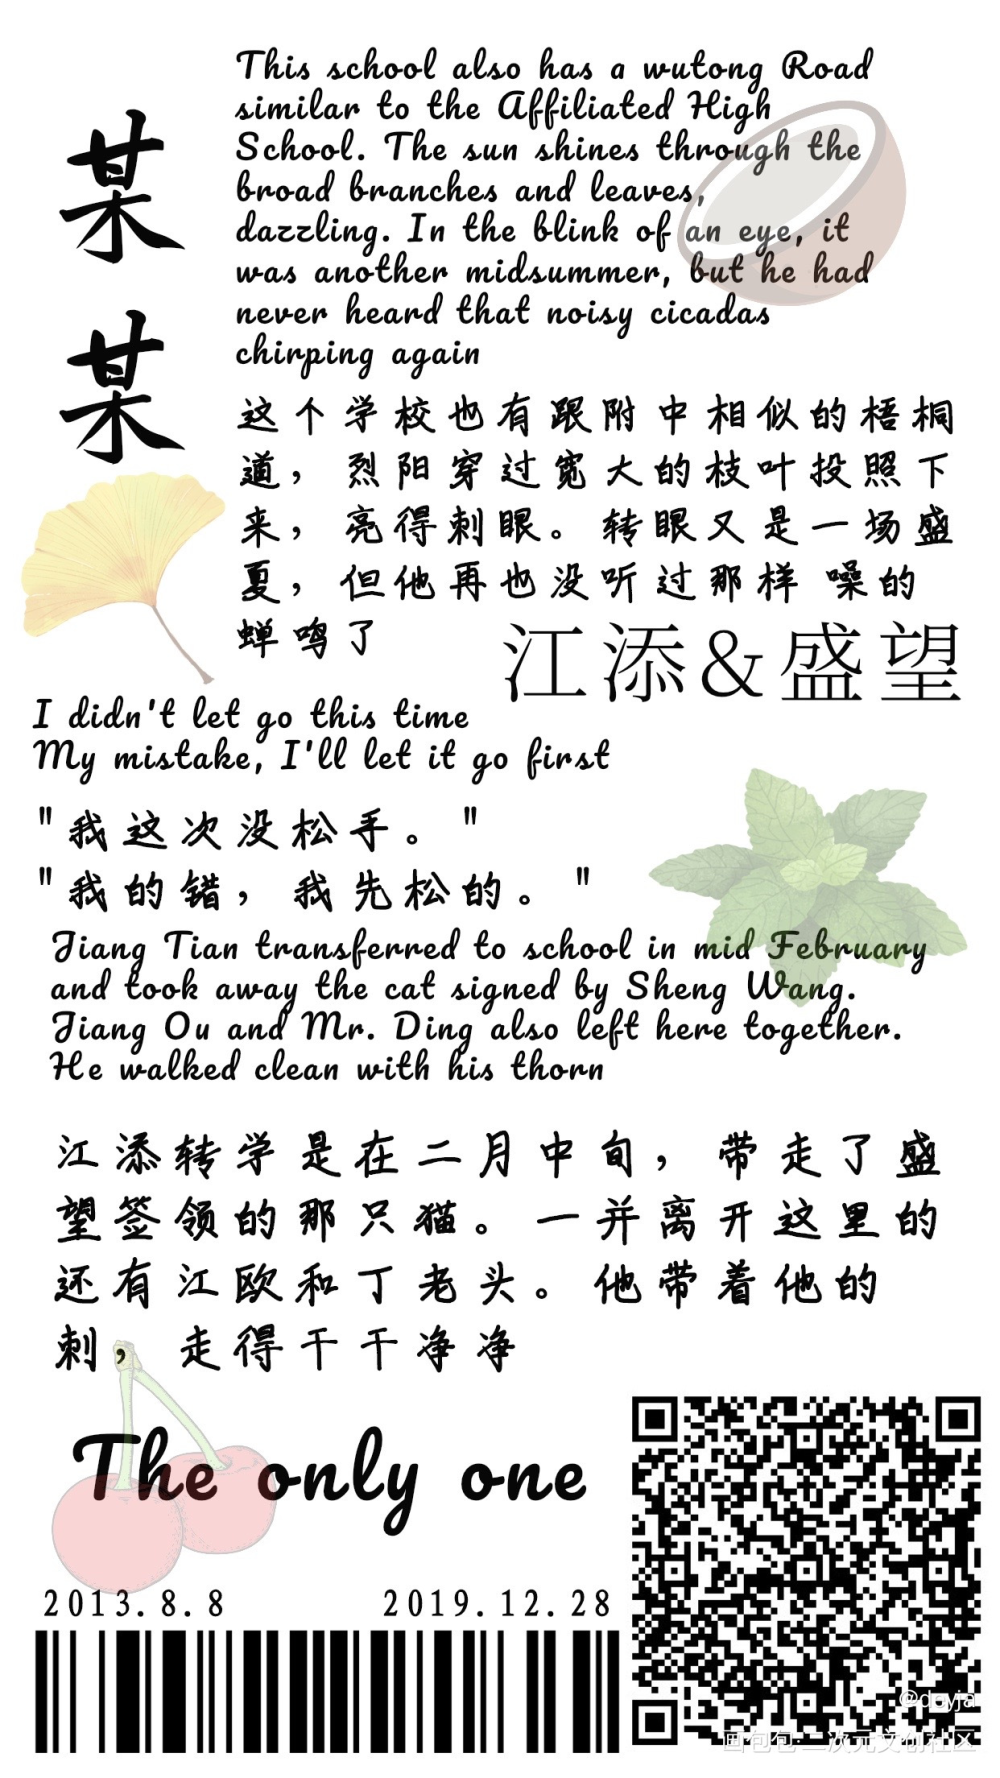 某
某
This school also has a wutong Road
similar to the Affiliated High
School. The sun shines through the
broad branches and leaves,
dazzling. In the blink of an eye, it
was another midsummer, but he had
never heard that noisy cicadas
chirping again
这个学校也有跟附中相似的梧桐
道，烈阳穿过宽大的枝叶投照下
来，亮得刺眼。转眼又是一场盛
夏，但他再也没听过那样 噪的
蝉鸣了
江添&盛望
I didn't let go this time
My mistake, I'll let it go first
"我这次没松手。"
"我的错，我先松的。"
Jiang Tian transferred to school in mid February
and took away the cat signed by Sheng Wang.
Jiang Ou and Mr. Ding also left here together.
He walked clean with his thorn
江添转学是在二月中旬，带走了盛
望签领的那只猫。一并离开这里的
还有江欧和丁老头。他带着他的
刺，走得干干净净
The only one
2013.8.8 2019.12.28
画包包·二次元文创社区